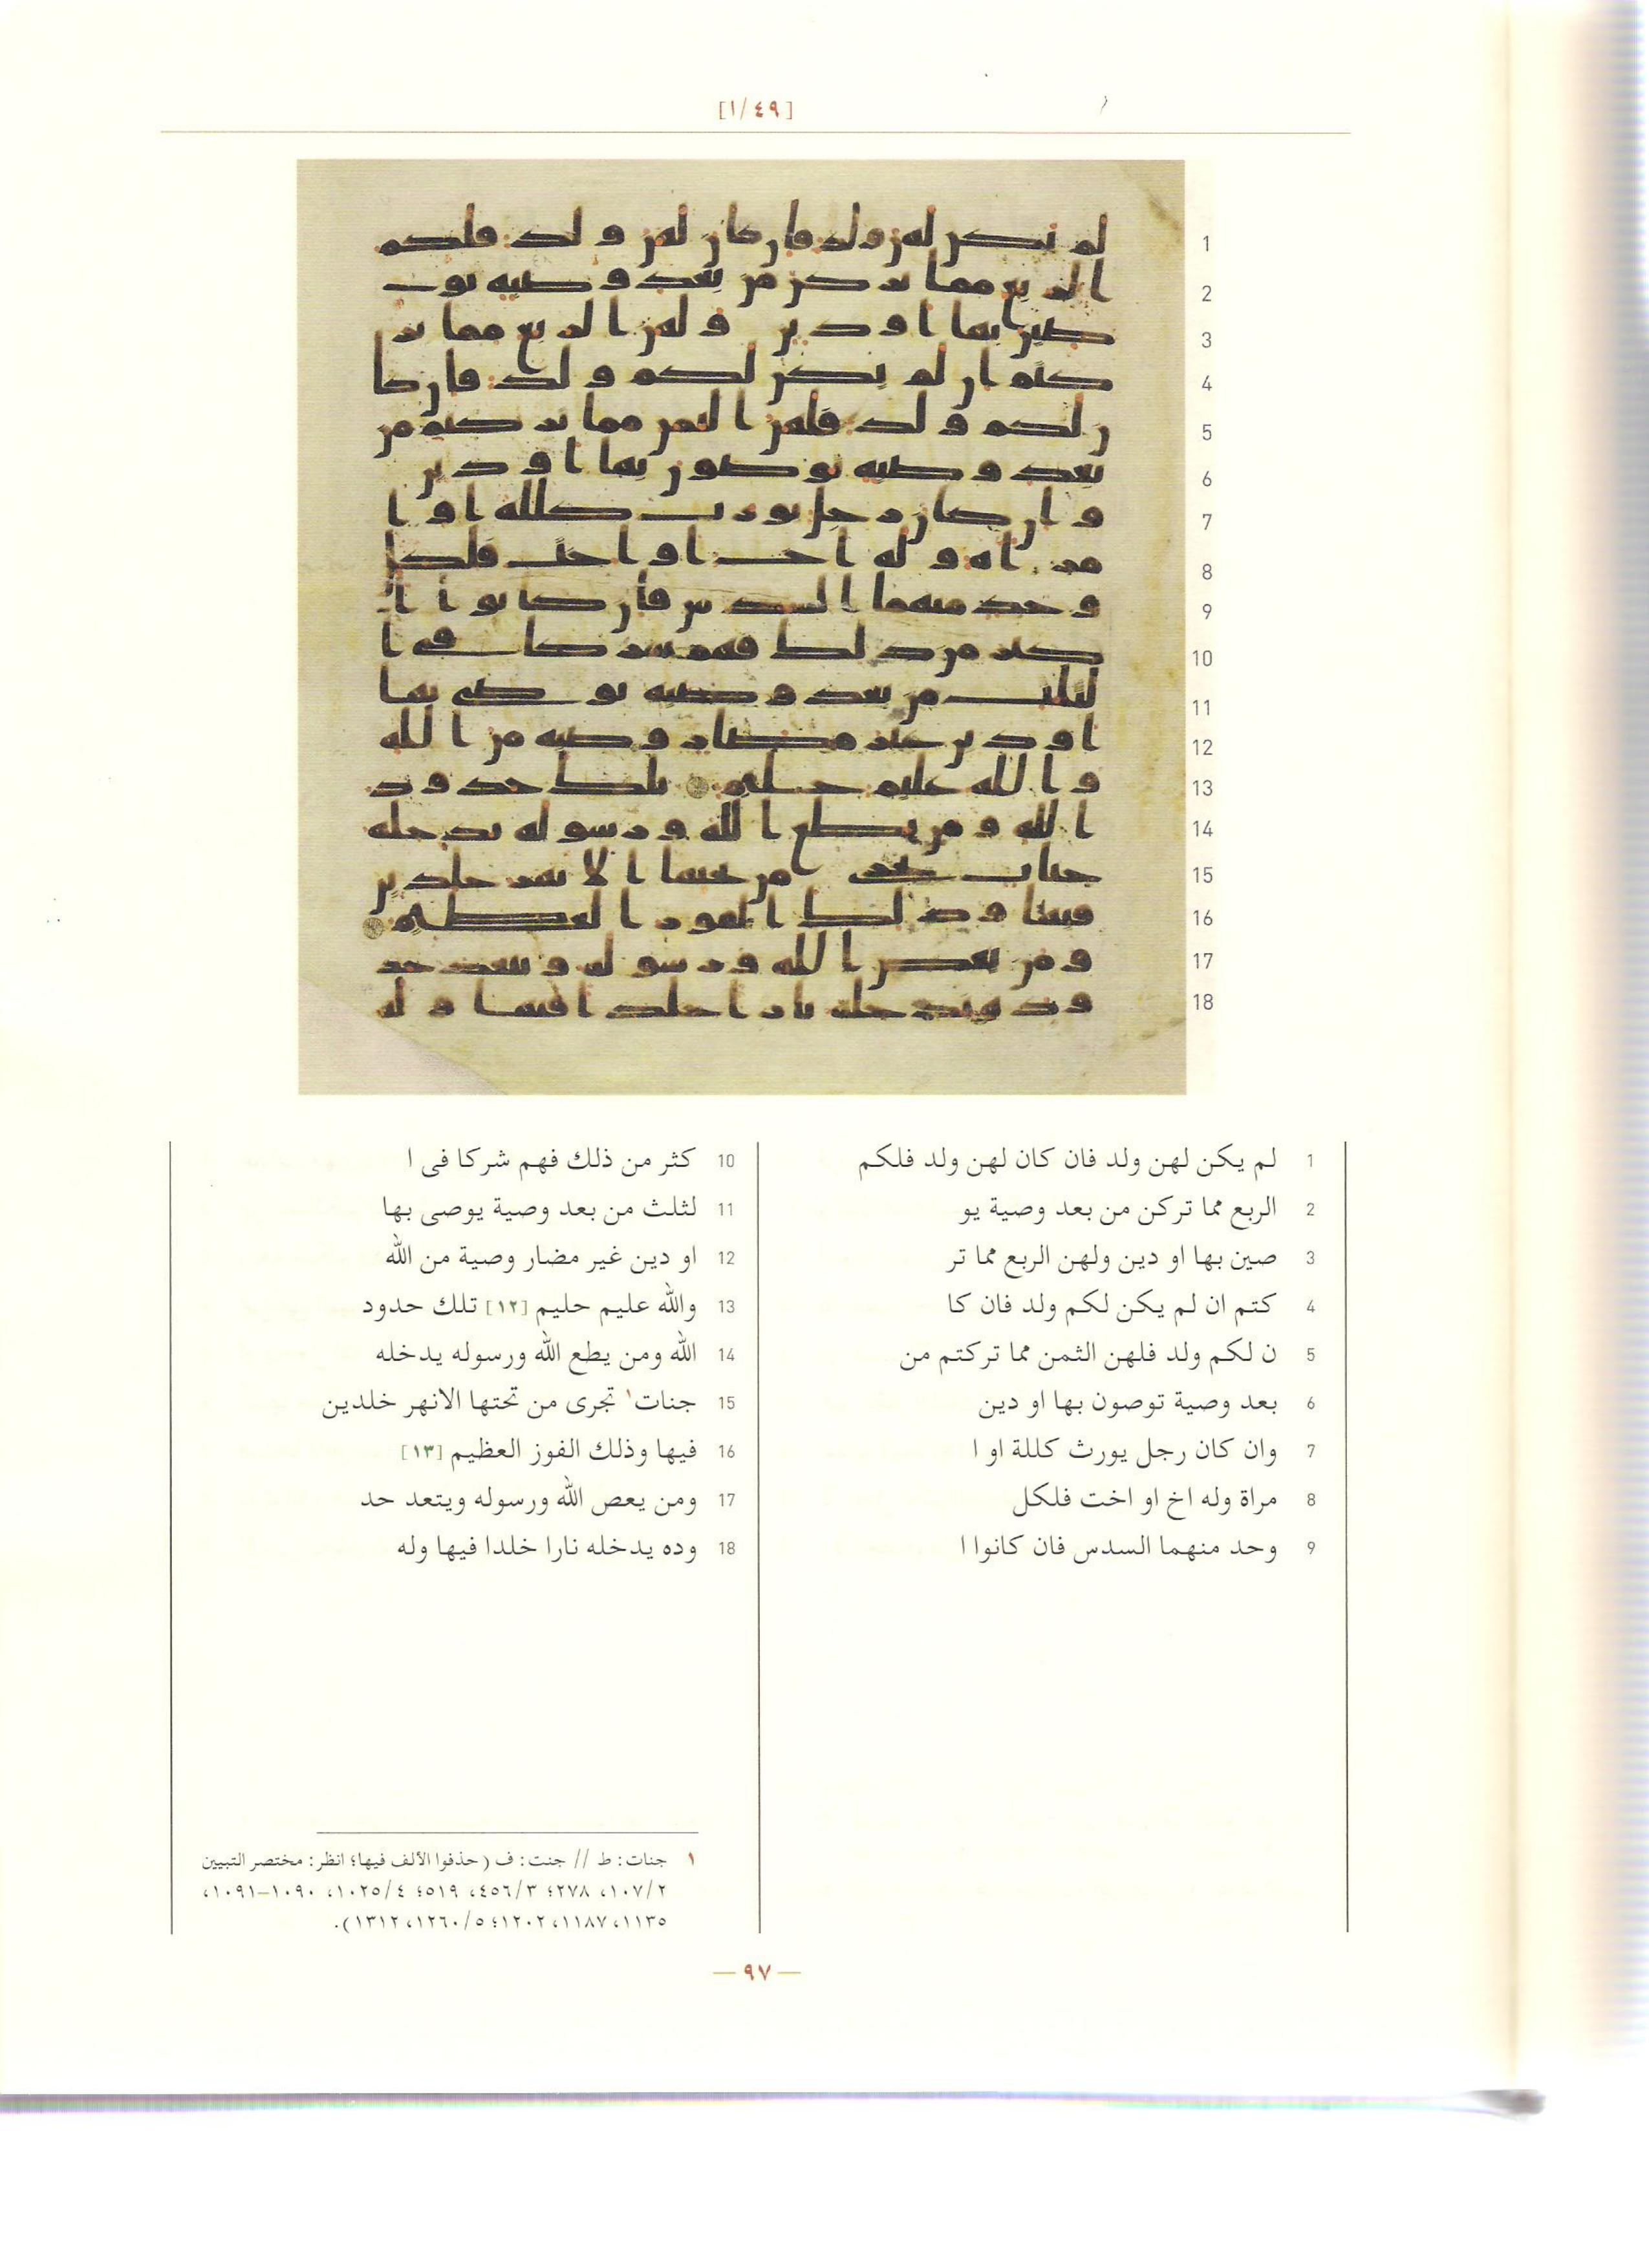 [١/٤٩]
1 لم يكن لهن ولد فان كان لهن ولد فلكم
2 الربع مما تركن من بعد وصية يو
3 صين بها او دين ولهن الربع مما تر
4 كتم ان لم يكن لكم ولد فان كا
5 ن لكم ولد فلهن الثمن مما تركتم من
6 بعد وصية توصون بها او دين
7 وان كان رجل يورث كللة او ا
8 مراة وله اخ او اخت فلكل
9 وحد منهما السدس فان كانوا ا
10 كثر من ذلك فهم شركا فى ا
11 لثلث من بعد وصية يوصى بها
12 او دين غير مضار وصية من الله
13 والله عليم حليم [١٢] تلك حدود
14 الله ومن يطع الله ورسوله يدخله
15 جنات١ تجرى من تحتها الانهر خلدين
16 فيها وذلك الفوز العظيم [١٣]
17 ومن يعص الله ورسوله ويتعد حد
18 وده يدخله نارا خلدا فيها وله
١ جنات: ط // جنت: ف (حذفوا الألف فيها؛ انظر: مختصر التبيين
٢/١٠٧، ٢٧٨؛ ٣/٤٥٦، ٥١٩؛ ٤/١٠٢٥، ١٠٩٠-١٠٩١،
١١٣٥، ١١٨٧، ١٢٠٢؛ ٥/١٢٦٠، ١٣١٢).
— ٩٧ —